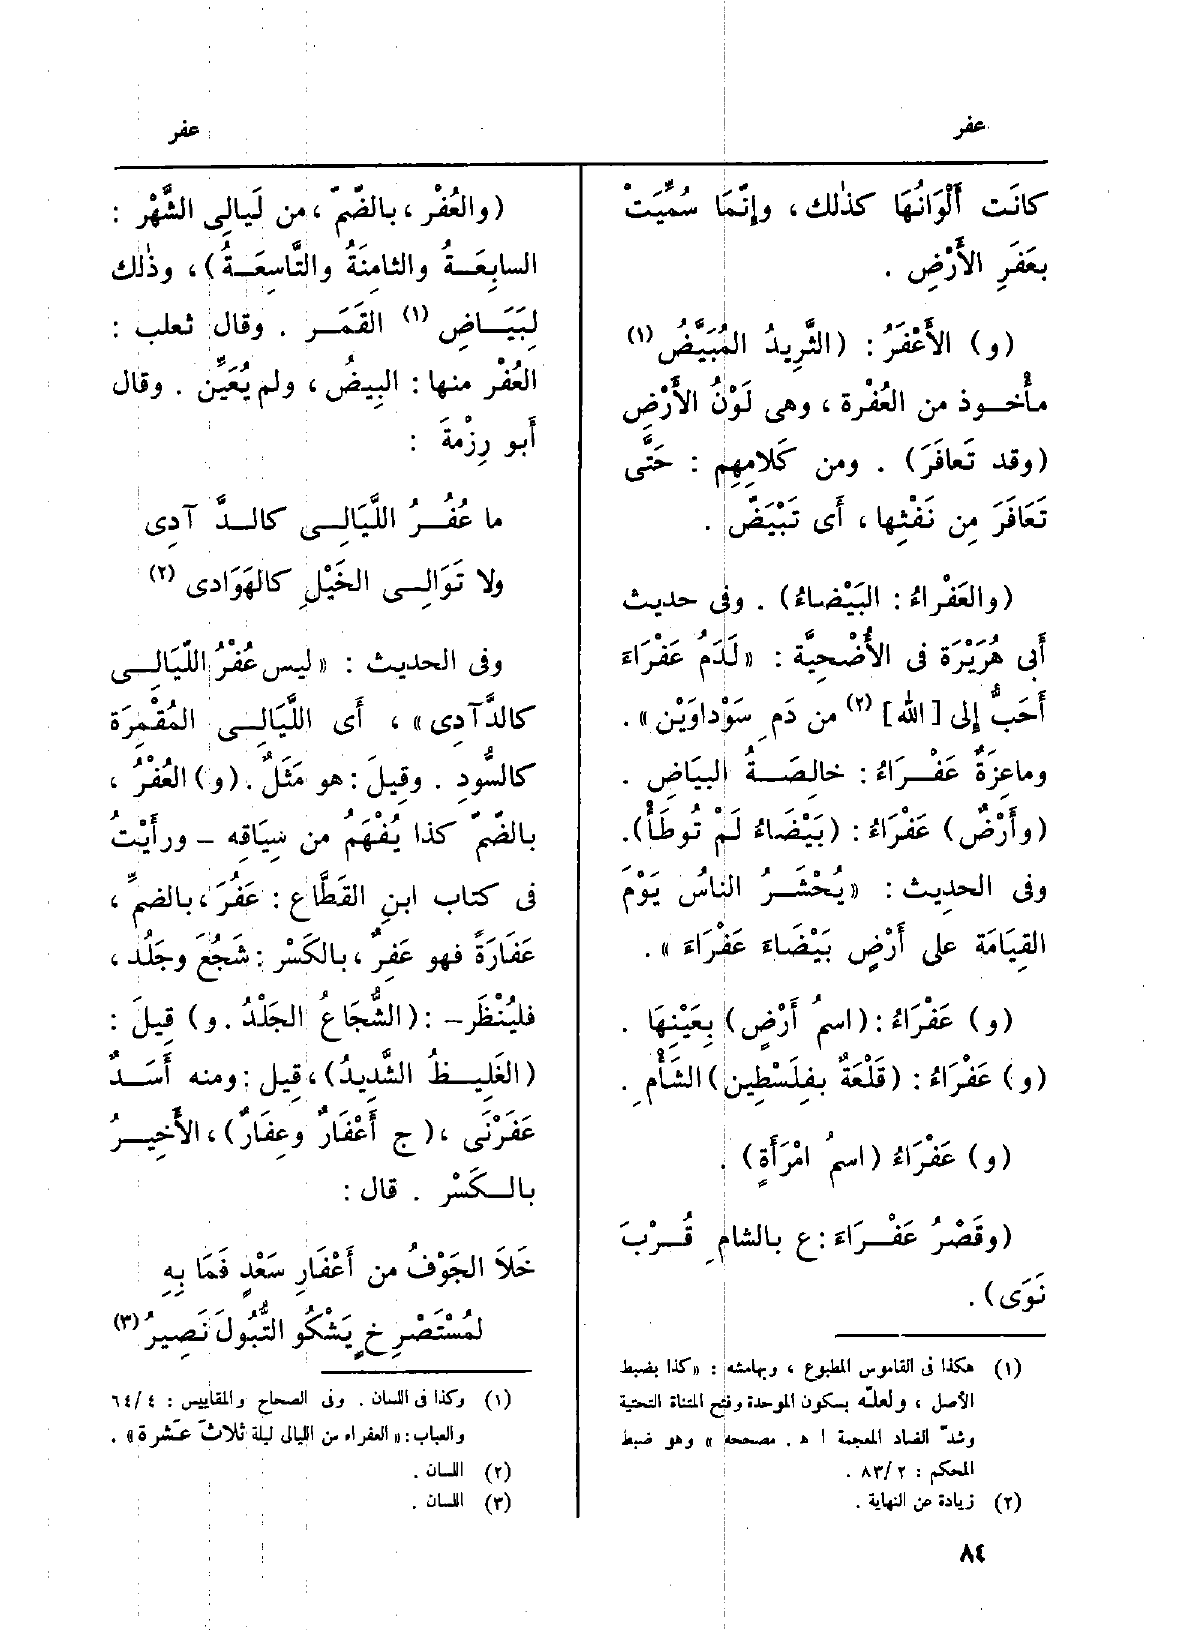 عفر
كانَت أَلْوَانُهَا كذٰلك ، وإِنَّمَا سُمِّيَتْ
بعَفَرِ الأَرْضِ .
(و) الأَعْفَرُ : (الثَّرِيدُ المُبَيَّضُ (١)
مأْخــوذ من العُفْرة ، وهى لَوْنُ الأَرْضِ
(وقد تَعافَرَ) . ومن كَلامِهِم : حَتَّى
تَعَافَرَ مِن نَفْثِها ، أَى تَبْيَضّ .
(والعَفْراءُ : البَيْضاءُ) . وفى حديث
أَبى هُرَيْرَة فى الأُضْحِيَّة : «لَدَمُ عَفْرَاءَ
أَحَبُّ إِلى [الله] (٢) من دَمِ سَوْداوَيْن» .
وماعِزَةٌ عَفْــرَاءُ : خالِصَــةُ البيَاضِ .
(وأَرْضٌ) عَفْرَاءُ : (بَيْضَاءُ لَمْ تُوطَأْ).
وفى الحديث : «يُحْشَــرُ الناسُ يَوْمَ
القِيَامَة على أَرْضٍ بَيْضَاءَ عَفْرَاءَ» .
(و) عَفْرَاءُ : (اسمُ أَرْضٍ) بِعَيْنِهَا .
(و) عَفْرَاءُ : (قَلْعَةٌ بفِلَسْطِين) الشَأْمِ .
(و) عَفْرَاءُ (اسمُ امْرَأَةٍ) .
(وقَصْرُ عَفْــرَاءَ : ع بالشامِ قُــرْبَ
نَوَى) .
(١) هكذا فى القاموس المطبوع ، وبهامشه : «كذا بضبط
الأصل ، ولعلّه بسكون الموحدة وفتح المثناة التحتية
وشدّ الضاد المعجمة ا هـ . مصححه» وهو ضبط
المحكم : ٢ /٨٣ .
(٢) زيادة عن النهاية .
٨٤
عفر
(والعُفْر ، بالضّمّ ، من لَيالِى الشَّهْر :
السابِعَــةُ والثامِنَةُ والتَّاسِعَــةُ) ، وذٰلك
لِبَيَــاضِ (١) القَمَــر . وقال ثعلب :
العُفْر منها : البِيضُ ، ولم يُعَيِّن . وقال
أَبو رِزْمةَ :
ما عُفُــرُ اللَّيَالِــى كالــدَّآدِى
ولا تَوَالِــى الخَيْلِ كالهَوَادى (٢)
وفى الحديث : «ليس عُفْرُ اللّيَالِــى
كالدَّآدِى» ، أَى اللَّيَالِــى المُقْمِرَة
كالسُّودِ . وقِيلَ : هو مَثَلٌ . (و) العُفْرُ ،
بالضّمّ كذا يُفْهَمُ من سِيَاقِه – ورأَيْتُ
فى كتاب ابنِ القَطَّاع : عَفُرَ ، بالضمّ ،
عَفَارَةً فهو عَفِرٌ ، بالكَسْر : شَجُعَ وجَلُد ،
فليُنْظَر – : (الشُّجَاعُ الجَلْدُ . و) قِيلَ :
(الغَلِيــظُ الشَّدِيدُ) ، قيل : ومنه أَسَــدٌ
عَفَرْنَى ، (ج أَعْفَارٌ وعِفَارٌ) ، الأَخِيــرُ
بالــكَسْر . قال :
خَلَا الجَوْفُ من أَعْفَارِ سَعْدٍ فَمَا بِهِ
لمُسْتَصْرِخٍ يَشْكُو التُّبُولَ نَصِيرُ (٣)
(١) وكذا فى اللسان . وفى الصحاح والمقاييس : ٤ /٦٤
والعباب : «العفراء من الليالى ليلة ثلاثَ عَشرة» .
(٢) اللسان .
(٣) اللسان .